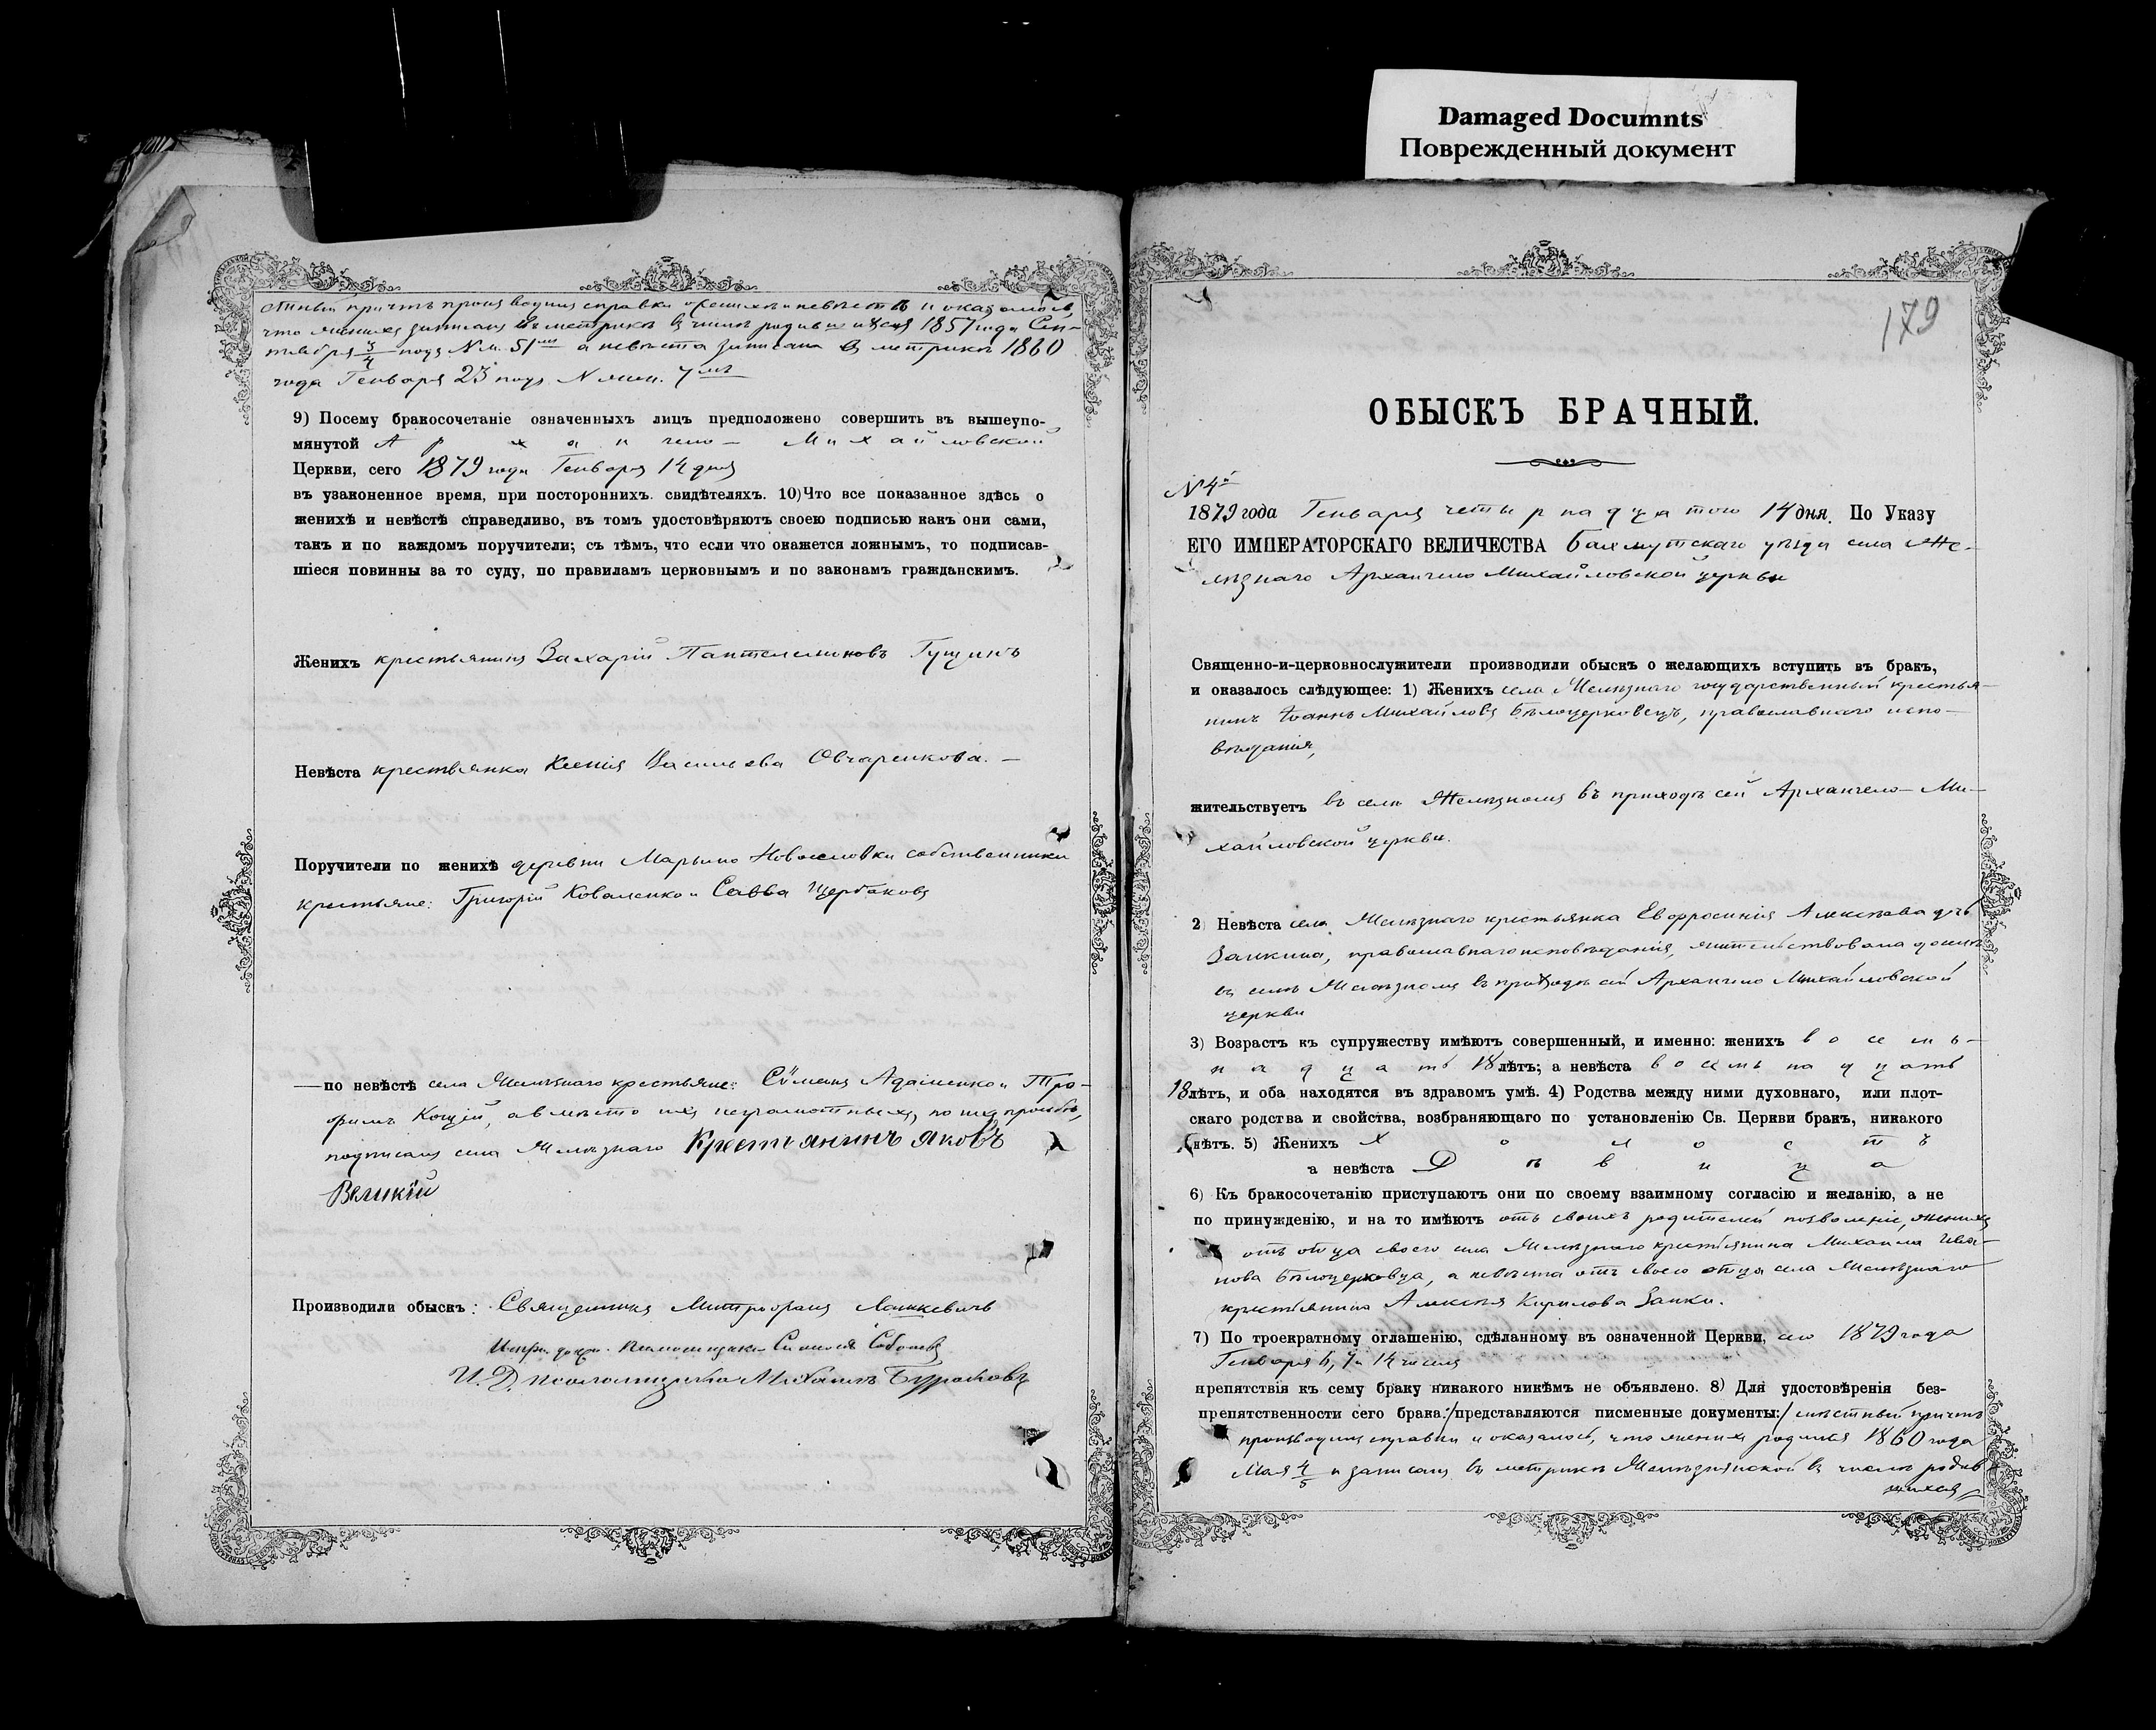 Damaged Documnts
Поврежденный документ
стный причтъ производилъ справки о женихѣ и невѣстѣ и оказалось,
что женихъ записанъ въ метрикѣ въ числѣ родившихся 1857 года Сен-
тября 3/4 подъ № м. 51мъ а невѣста записана въ метрикѣ 1860
года Генваря 23 подъ № жен. 7мъ
9) Посему бракосочетаніе означенныхъ лицъ предположено совершить въ вышеупо-
мянутой Архангело-Михайловской
Церкви, сего 1879 года Генваря 14 дня
въ узаконенное время, при постороннихъ свидѣтеляхъ. 10) Что все показанное здѣсь о
женихѣ и невѣстѣ справедливо, въ томъ удостовѣряютъ своею подписью какъ они сами,
такъ и по каждомъ поручители; съ тѣмъ, что если что окажется ложнымъ, то подписав-
шіеся повинны за то суду, по правиламъ церковнымъ и по законамъ гражданскимъ.
Женихъ крестьянинъ Захарій Пантелеимоновъ Гущинъ
Невѣста крестьянка Ксенія Васильева Овчаренкова. —
Поручители по женихѣ деревни Марьино Новоселовки собственники
крестьяне: Григорій Коваленко и Савва Щербаковъ
—по невѣстѣ села Желѣзнаго крестьяне: Сѵмеонъ Адаменко и Тро-
фимъ Коцій, а вмѣсто ихъ неграмотныхъ, по ихъ просьбѣ,
подписалъ села Желѣзнаго Крестьянинъ Яковъ
Великій
Производили обыскъ: Священникъ Митрофанъ Лашкевичъ
Испр. долж. Псаломщика Соболевъ
И. Д. псаломщика Михаилъ Бураковъ
179
ОБЫСКЪ БРАЧНЫЙ.
№ 4й
1879 года Генваря четырнадцатого 14 дня. По Указу
ЕГО ИМПЕРАТОРСКАГО ВЕЛИЧЕСТВА Бахмутскаго уѣзда села Же-
лѣзнаго Архангело Михайловской церкви
Священно-и-церковнослужители производили обыскъ о желающихъ вступить въ бракъ,
и оказалось слѣдующее: 1) Женихъ села Желѣзнаго государственный крестья-
нинъ Іоаннъ Михайловъ Бѣлоцерковецъ, православнаго испо-
вѣданія,
жительствуетъ въ селѣ Желѣзномъ въ приходѣ сей Архангело-Ми-
хайловской церкви.
2) Невѣста села Желѣзнаго крестьянка Евфросинія Алексѣева дочь
Заикина, православнаго исповѣданія, жительствовала донынѣ
въ селѣ Желѣзномъ въ приходѣ сей Архангело Михайловской
церкви
3) Возрастъ къ супружеству имѣютъ совершенный, и именно: женихъ восемь-
надцать 18 лѣтъ; а невѣста восемьнадцать
18 лѣтъ, и оба находятся въ здравомъ умѣ. 4) Родства между ними духовнаго, или плот-
скаго родства и свойства, возбраняющаго по установленію Св. Церкви бракъ, никакого
нѣтъ. 5) Женихъ Холостъ
а невѣста Дѣвица
6) Къ бракосочетанію приступаютъ они по своему взаимному согласію и желанію, а не
по принужденію, и на то имѣютъ отъ своихъ родителей позволеніе, женихъ
отъ отца своего села Желѣзнаго крестьянина Михаила Ива-
нова Бѣлоцерковца, а невѣста отъ своего отца села Желѣзнаго
крестьянина Алексѣя Кирилова Заики.
7) По троекратному оглашенію, сдѣланному въ означенной Церкви, сего 1879 года
Генваря 6, 7 и 14 числа
препятствія къ сему браку никакого никѣмъ не объявлено. 8) Для удостовѣренія без-
препятственности сего брака:/представляются писменные документы:/ мѣстный причтъ
производилъ справки и оказалось, что женихъ родился 1860 года
Мая 4/5 и записанъ въ метрикѣ Желѣзнянской въ числѣ родив
шихся